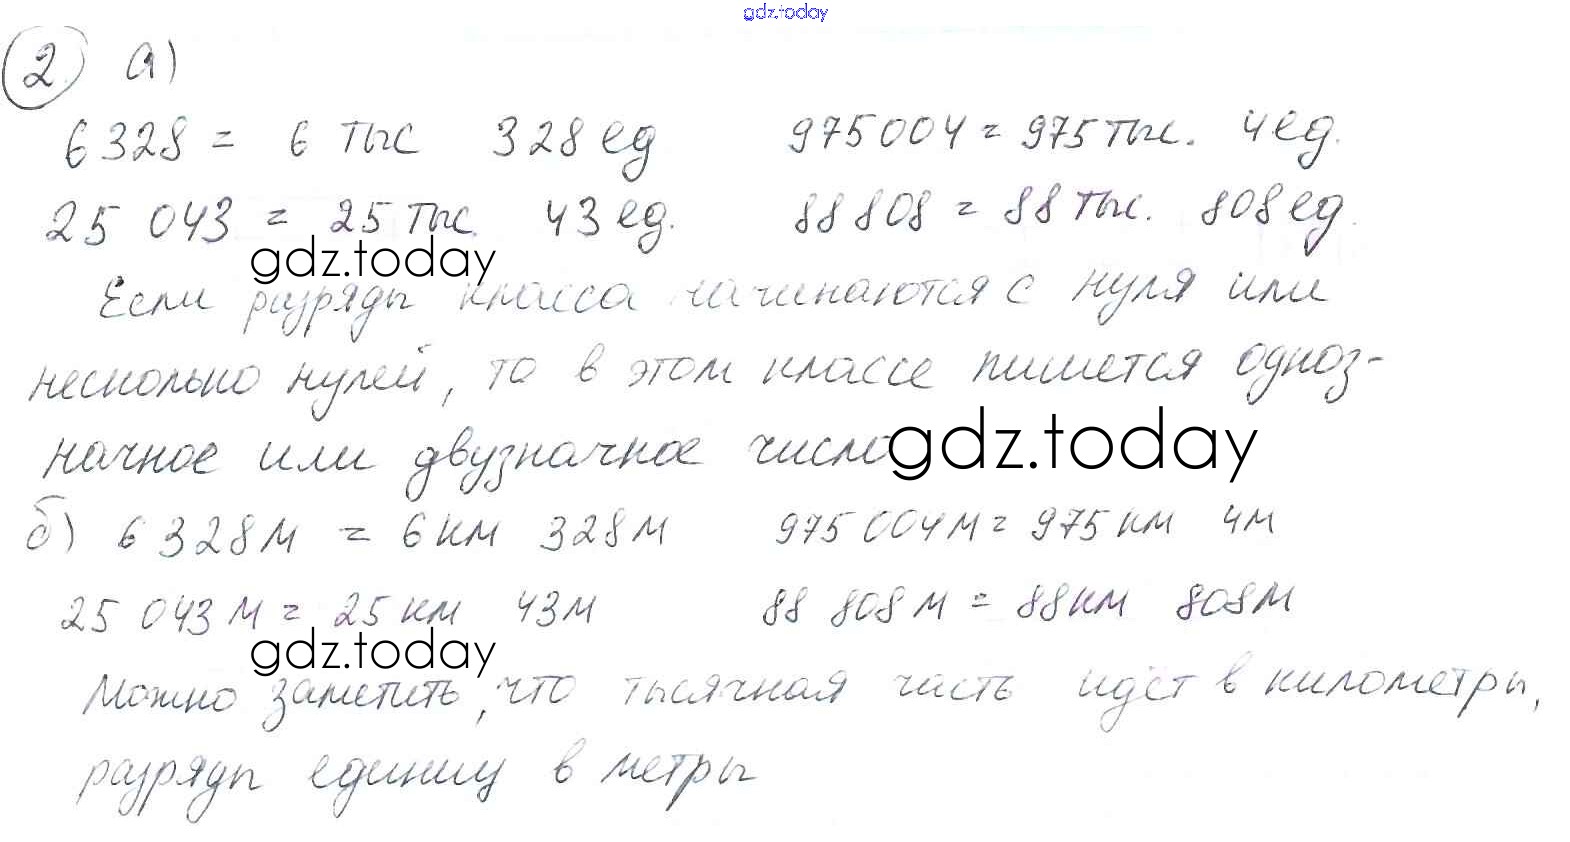 gdz.today
2 а)
6 328 = 6 тыс 328 ед 975 004 = 975 тыс. 4 ед.
25 043 = 25 тыс. 43 ед. 88 808 = 88 тыс. 808 ед.
gdz.today
Если разряды класса начинаются с нуля или
несколько нулей, то в этом классе пишется одноз-
начное или двузначное число
gdz.today
б) 6 328 м = 6 км 328 м 975 004 м = 975 км 4 м
25 043 м = 25 км 43 м 88 808 м = 88 км 808 м
gdz.today
Можно заметить, что тысячная часть идёт в километры,
разряды единиц в метры